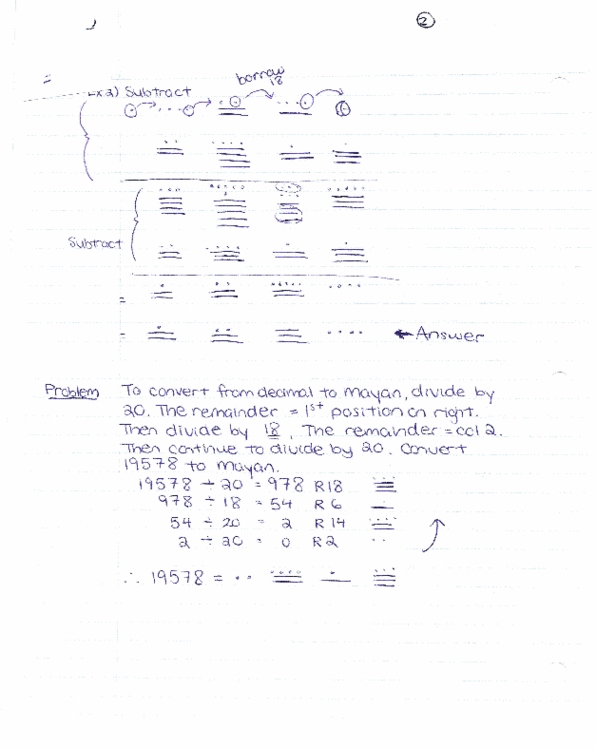 ②
borrow
18
Ex 2) Subtract
Subtract
=
= ← Answer
Problem To convert from decimal to Mayan, divide by
20. The remainder = 1st position on right.
Then divide by 18. The remainder = col 2.
Then continue to divide by 20. Convert
19578 to Mayan.
19578 ÷ 20 = 978 R18
978 ÷ 18 = 54 R 6
54 ÷ 20 = 2 R 14
2 ÷ 20 = 0 R2
∴ 19578 =